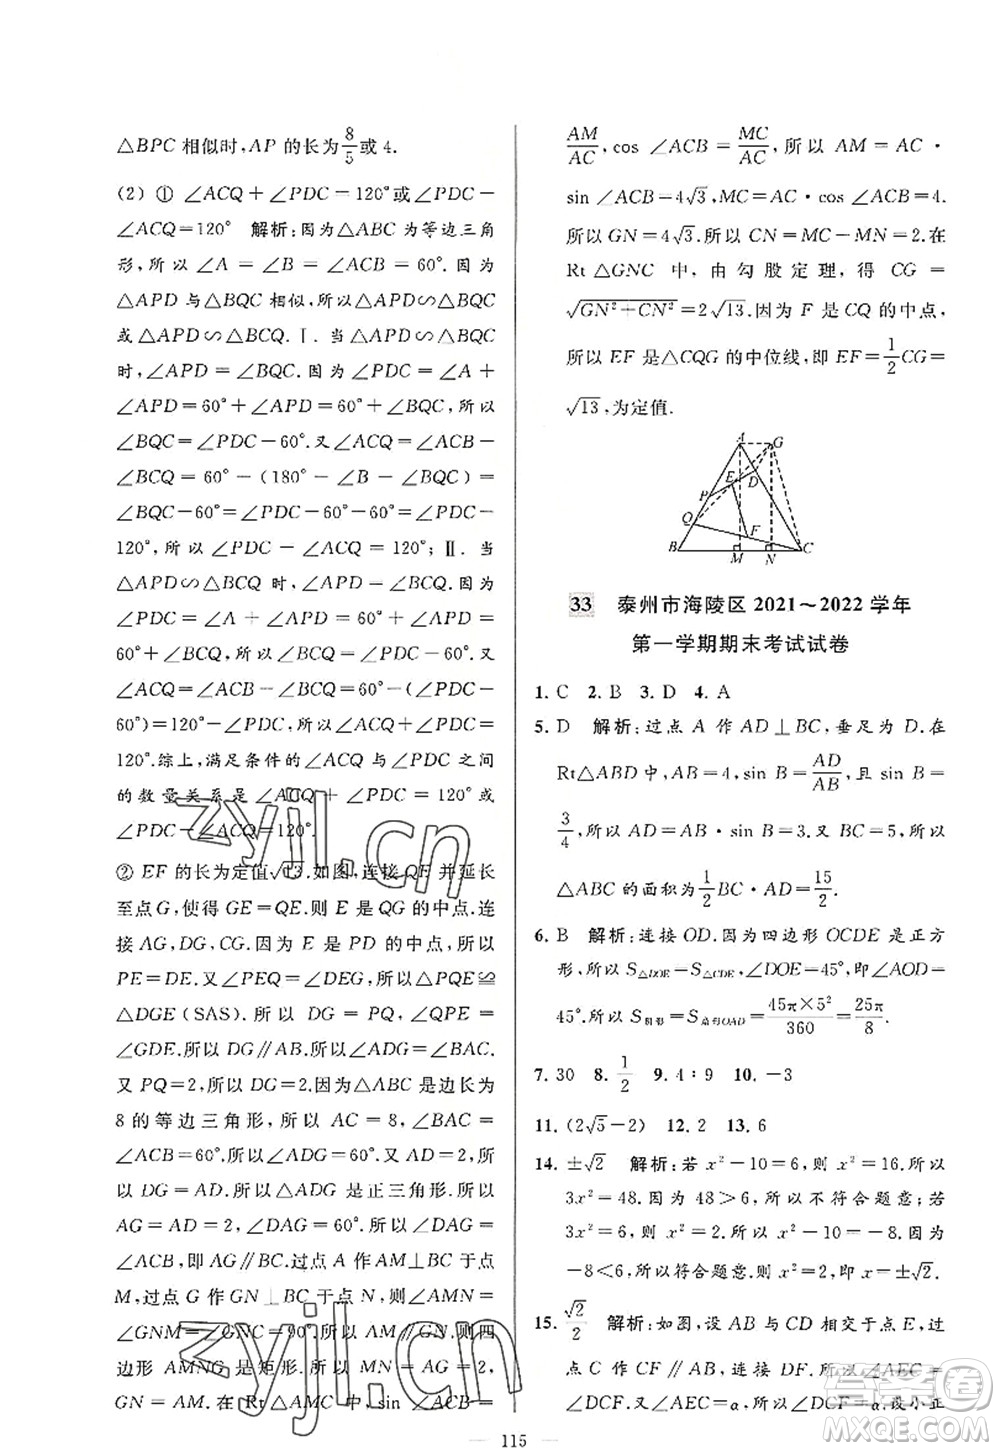 △BPC 相似时,AP 的长为8/5或4.
(2) ① ∠ACQ+∠PDC=120°或∠PDC-
∠ACQ=120° 解析:因为△ABC 为等边三角
形,所以∠A=∠B=∠ACB=60°.因为
△APD 与△BQC 相似,所以△APD∽△BQC
或△APD∽△BCQ.Ⅰ.当△APD∽△BQC
时,∠APD=∠BQC.因为∠PDC=∠A+
∠APD=60°+∠APD=60°+∠BQC,所以
∠BQC=∠PDC-60°.又∠ACQ=∠ACB-
∠BCQ=60°-(180°-∠B-∠BQC)=
∠BQC-60°=∠PDC-60°-60°=∠PDC-
120°,所以∠PDC-∠ACQ=120°;Ⅱ.当
△APD∽△BCQ 时,∠APD=∠BCQ.因为
∠PDC=∠A+∠APD=60°+∠APD=
60°+∠BCQ,所以∠BCQ=∠PDC-60°.又
∠ACQ=∠ACB-∠BCQ=60°-(∠PDC-
60°)=120°-∠PDC,所以∠ACQ+∠PDC=
120°.综上,满足条件的∠ACQ 与∠PDC 之间
的数量关系是∠ACQ+∠PDC=120°或
∠PDC-∠ACQ=120°.
② EF 的长为定值√13.如图,连接QE 并延长
至点G,使得GE=QE.则E 是QG 的中点.连
接AG,DG,CG.因为E 是PD 的中点,所以
PE=DE.又∠PEQ=∠DEG,所以△PQE≌
△DGE(SAS).所以DG=PQ,∠QPE=
∠GDE.所以DG∥AB.所以∠ADG=∠BAC.
又PQ=2,所以DG=2.因为△ABC 是边长为
8的等边三角形,所以AC=8,∠BAC=
∠ACB=60°.所以∠ADG=60°.又AD=2,所
以AD=DG.所以△ADG 是正三角形.所以
AG=AD=2,∠DAG=60°.所以∠DAG=
∠ACB,即AG∥BC.过点A 作AM⊥BC 于点
M,过点G 作GN⊥BC 于点N,则∠AMN=
∠GNM=∠GNC=90°.所以AM∥GN.所以四
边形AMNG 是矩形.所以MN=AG=2,
GN=AM.在Rt△AMC 中,sin∠ACB=
AM/AC,cos∠ACB=MC/AC,所以AM=AC·
sin∠ACB=4√3,MC=AC·cos∠ACB=4.
所以GN=4√3.所以CN=MC-MN=2.在
Rt△GNC 中,由勾股定理,得CG=
√(GN²+CN²)=2√13.因为F 是CQ 的中点,
所以EF 是△CQG 的中位线,即EF=1/2CG=
√13,为定值.
A G
E D
P
Q F
B M N C
33 泰州市海陵区2021~2022学年
第一学期期末考试试卷
1. C 2. B 3. D 4. A
5. D 解析:过点A 作AD⊥BC,垂足为D.在
Rt△ABD 中,因为AB=4,sin B=AD/AB,且sin B=
3/4,所以AD=AB·sin B=3.又BC=5,所以
△ABC 的面积为1/2BC·AD=15/2.
6. B 解析:连接OD.因为四边形OCDE 是正方
形,所以S△DOE=S△CDE,∠DOE=45°,即∠AOD=
45°.所以S阴影=S扇形OAD=45π×5²/360=25π/8.
7. 30 8. 1/2 9. 4∶9 10. -3
11. (2√5-2) 12. 2 13. 6
14. ±√2 解析:若x²-10=6,则x²=16.所以
3x²=48.因为48>6,所以不符合题意;若
3x²=6,则x²=2.所以x²-10=-8.因为
-8<6,所以符合题意,即x=±√2.
15. √2/2 解析:如图,设AB 与CD 相交于点E,过
点C 作CF∥AB,连接DF.所以∠AEC=
∠DCF.又∠AEC=α,所以∠DCF=α.设小正
115
zyjl.cn
zyjl.cn
答案圈
MXQE.COM